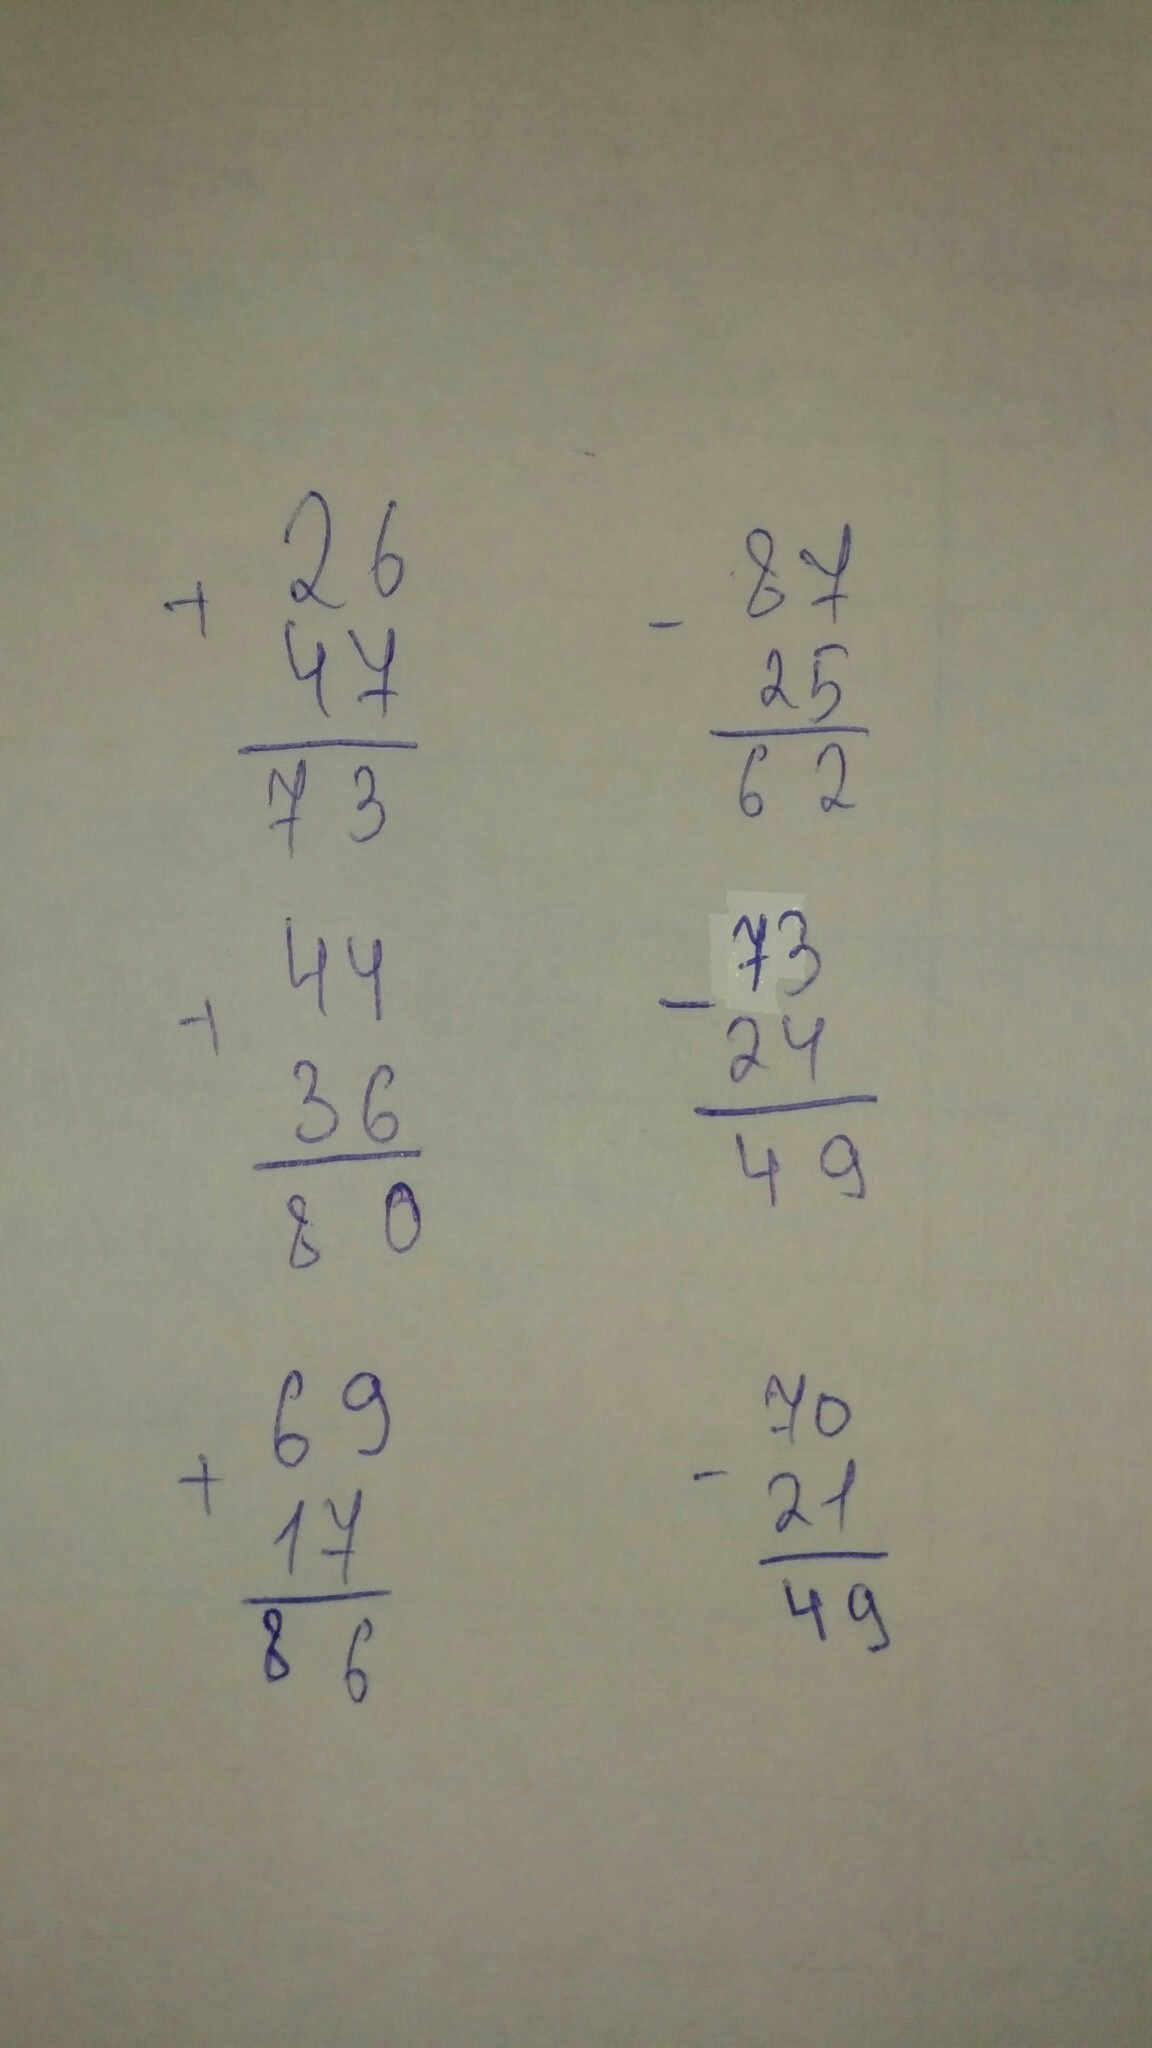 26
+
47
73
87
-
25
62
44
+
36
80
73
-
24
49
69
+
17
86
70
-
21
49